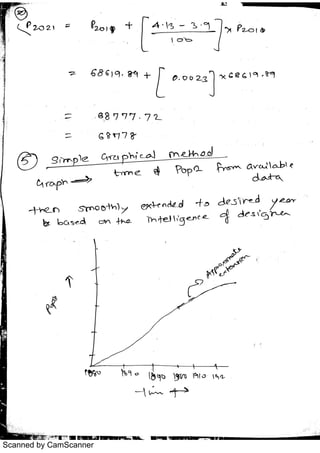 ②
P2021 = P2010 + [4.13 - 3.9 / 100] x P2010
= 68619.89 + [0.0023] x 68619.89
= 68777.72
= 68778
⑤ Simple Graphical method
Graph ⇒ time & Popn from available data
then smoothly extended to desired year
& based on the intelligence of designer
Approximate extension
Popn ↑
1880 1890 1890 1900 1910 192
time →
Scanned by CamScanner